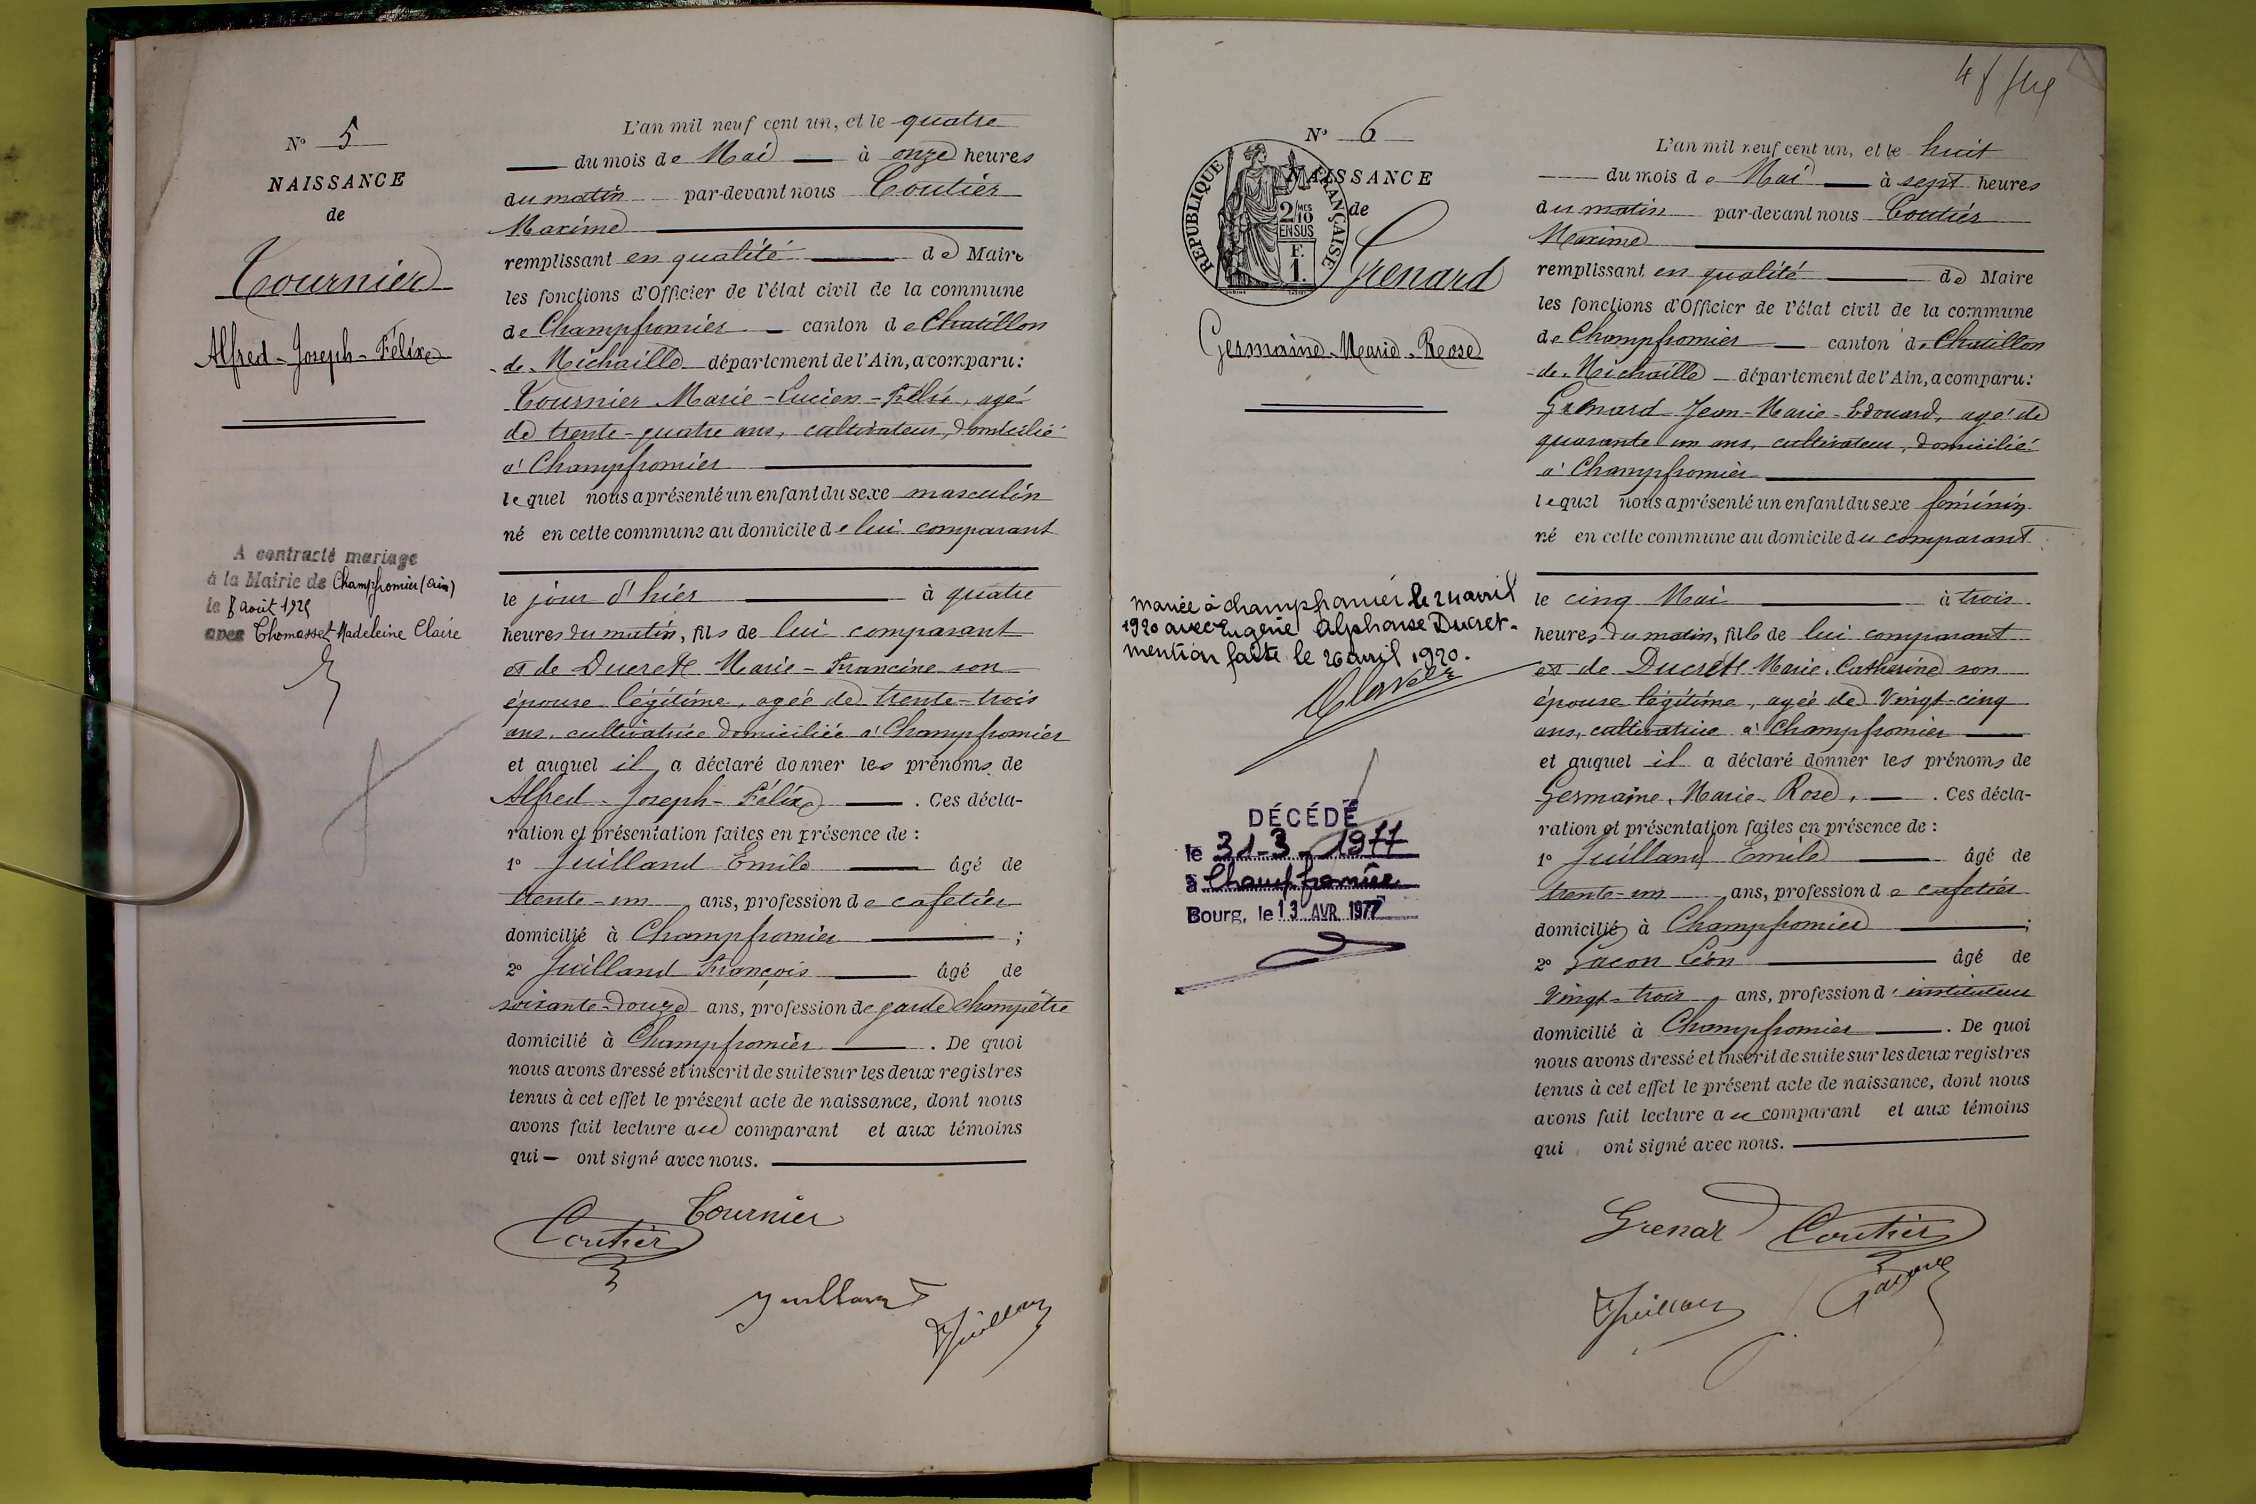 N° 5
NAISSANCE
de
Tournier
Alfred-Joseph-Félix
A contracté mariage
à la Mairie de Champfromier (Ain)
le 8 août 1925
avec Thomasset Madeleine Claire
L'an mil neuf cent un, et le quatre
du mois de Mai à onze heures
du matin par-devant nous Coutier
Maxime
remplissant en qualité de Maire
les fonctions d'Officier de l'état civil de la commune
de Champfromier canton de Chatillon
-de-Michaille département de l'Ain, a comparu:
Tournier Marie-Lucien-Félix, agé
de trente-quatre ans, cultivateur, domicilié
à Champfromier
lequel nous a présenté un enfant du sexe masculin
né en cette commune au domicile de lui comparant
le jour d'hier à quatre
heures du matin, fils de lui comparant
et de Ducrett Marie-Francine son
épouse légitime, agée de trente-trois
ans, cultivatrice domiciliée à Champfromier
et auquel il a déclaré donner les prénoms de
Alfred-Joseph-Félix. Ces décla-
ration et présentation faites en présence de :
1° Juilland Emile âgé de
trente-un ans, profession de cafetier
domicilié à Champfromier ;
2° Juilland François âgé de
soixante-douze ans, profession de garde champêtre
domicilié à Champfromier. De quoi
nous avons dressé et inscrit de suite sur les deux registres
tenus à cet effet le présent acte de naissance, dont nous
avons fait lecture au comparant et aux témoins
qui ont signé avec nous.
Tournier
Coutier
Juilland
Juilland
N° 6
NAISSANCE
de
RÉPUBLIQUE FRANÇAISE
2/10 MES
EN SUS
F.
1.
Grenard
Germaine-Marie-Rose
mariée à champfromier le 24 avril
1920 avec Eugène Alphonse Ducret.
mention faite le 26 avril 1920.
DÉCÉDÉ
le 31-3-1977
à Champfromier
Bourg, le 13 AVR 1977
L'an mil neuf cent un, et le huit
du mois de Mai à sept heures
du matin par-devant nous Coutier
Maxime
remplissant en qualité de Maire
les fonctions d'Officier de l'état civil de la commune
de Champfromier canton de Chatillon
-de-Michaille département de l'Ain, a comparu:
Grenard Jean-Marie-Edouard, agé de
quarante un ans, cultivateur, domicilié
à Champfromier
lequel nous a présenté un enfant du sexe féminin
né en cette commune au domicile du comparant
le cinq Mai à trois
heures du matin, fille de lui comparant
et de Ducrett Marie-Catherine son
épouse légitime, agée de Vingt-cinq
ans, cultivatrice à Champfromier
et auquel il a déclaré donner les prénoms de
Germaine-Marie-Rose. Ces décla-
ration et présentation faites en présence de :
1° Juilland Emile âgé de
trente-un ans, profession de cafetier
domicilié à Champfromier ;
2° Gacon Léon âgé de
Vingt-trois ans, profession d'instituteur
domicilié à Champfromier. De quoi
nous avons dressé et inscrit de suite sur les deux registres
tenus à cet effet le présent acte de naissance, dont nous
avons fait lecture au comparant et aux témoins
qui ont signé avec nous.
Grenard Coutier
Juilland Gacon